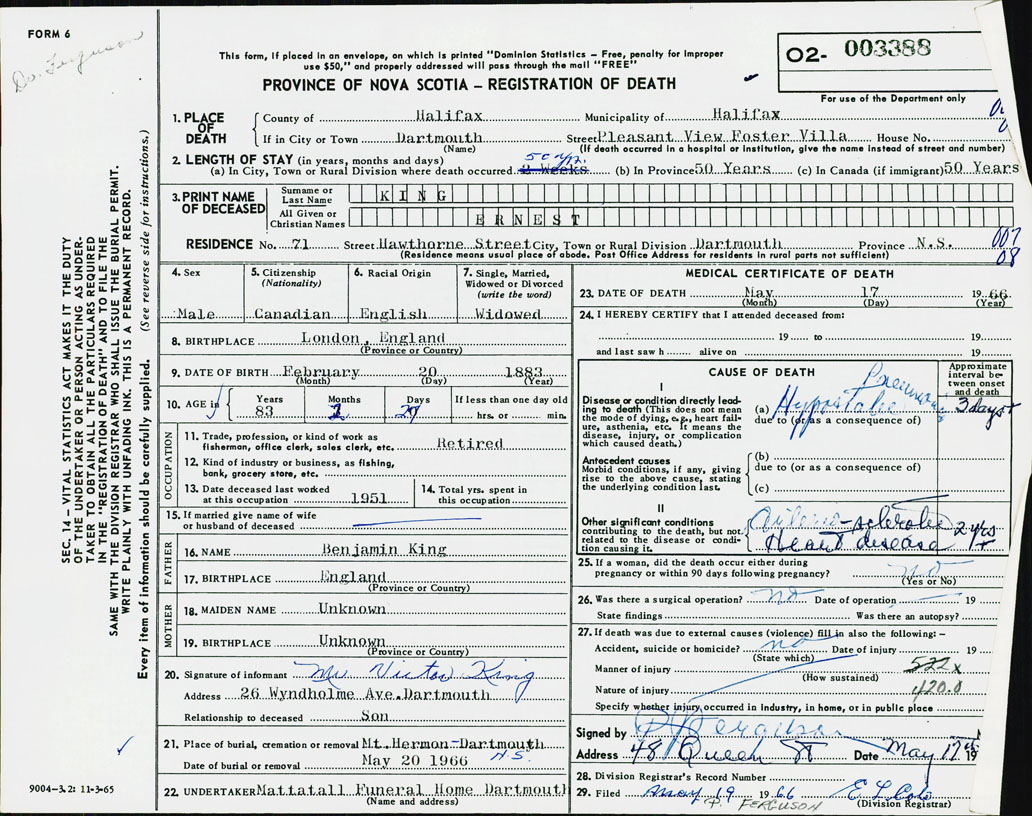 FORM 6
Dr. Ferguson
This form, if placed in an envelope, on which is printed "Dominion Statistics – Free, penalty for improper
use $50," and properly addressed will pass through the mail "FREE"
PROVINCE OF NOVA SCOTIA – REGISTRATION OF DEATH
02- 003388
For use of the Department only
1. PLACE OF DEATH
County of Halifax Municipality of Halifax
If in City or Town Dartmouth Street Pleasant View Foster Villa House No.
(Name) (If death occurred in a hospital or institution, give the name instead of street and number)
2. LENGTH OF STAY (in years, months and days) 50 yrs.
(a) In City, Town or Rural Division where death occurred 2 Weeks (b) In Province 50 Years (c) In Canada (if immigrant) 50 Years
3. PRINT NAME OF DECEASED
Surname or Last Name KING
All Given or Christian Names ERNEST
RESIDENCE No. 71 Street Hawthorne Street City, Town or Rural Division Dartmouth Province N.S.
(Residence means usual place of abode. Post Office Address for residents in rural parts not sufficient)
007
08
4. Sex
Male
5. Citizenship
(Nationality)
Canadian
6. Racial Origin
English
7. Single, Married,
Widowed or Divorced
(write the word)
Widowed
8. BIRTHPLACE London, England
(Province or Country)
9. DATE OF BIRTH February 20 1883
(Month) (Day) (Year)
10. AGE in
Years Months Days If less than one day old
83 2 27 hrs. or min.
OCCUPATION
11. Trade, profession, or kind of work as
fisherman, office clerk, sales clerk, etc. Retired
12. Kind of industry or business, as fishing,
bank, grocery store, etc.
13. Date deceased last worked
at this occupation 1951
14. Total yrs. spent in
this occupation
15. If married give name of wife
or husband of deceased
FATHER
16. NAME Benjamin King
17. BIRTHPLACE England
(Province or Country)
MOTHER
18. MAIDEN NAME Unknown
19. BIRTHPLACE Unknown
(Province or Country)
20. Signature of informant Mr Victor King
Address 26 Wyndholme Ave. Dartmouth
Relationship to deceased Son
21. Place of burial, cremation or removal Mt. Hermon-Dartmouth
N.S.
Date of burial or removal May 20 1966
22. UNDERTAKER Mattatall Funeral Home Dartmouth
(Name and address)
MEDICAL CERTIFICATE OF DEATH
23. DATE OF DEATH May 17 1966
(Month) (Day) (Year)
24. I HEREBY CERTIFY that I attended deceased from:
19 to 19
and last saw h alive on 19
CAUSE OF DEATH
Approximate interval between onset and death
I
Disease or condition directly lead-
ing to death (This does not mean
the mode of dying, e.g., heart fail-
ure, asthenia, etc. It means the
disease, injury, or complication
which caused death.)
(a) Hypostatic Pneumonia 3 days
due to (or as a consequence of)
Antecedent causes
Morbid conditions, if any, giving
rise to the above cause, stating
the underlying condition last.
(b)
due to (or as a consequence of)
(c)
II
Other significant conditions
contributing to the death, but not
related to the disease or condi-
tion causing it.
Arterio-sclerotic
Heart disease 2 yrs +
25. If a woman, did the death occur either during
pregnancy or within 90 days following pregnancy? no
(Yes or No)
26. Was there a surgical operation? no Date of operation 19
State findings Was there an autopsy?
27. If death was due to external causes (violence) fill in also the following: –
Accident, suicide or homicide? no Date of injury 19
(State which)
Manner of injury 522x
(How sustained)
Nature of injury 420.0
Specify whether injury occurred in industry, in home, or in public place
Signed by P Ferguson
Address 48 Queen St Date May 17th 19
28. Division Registrar's Record Number
29. Filed May 19 1966
P. FERGUSON
(Division Registrar)
SEC. 14 – VITAL STATISTICS ACT MAKES IT THE DUTY
OF THE UNDERTAKER OR PERSON ACTING AS UNDER-
TAKER TO OBTAIN ALL THE PARTICULARS REQUIRED
IN THE "REGISTRATION OF DEATH" AND TO FILE THE
SAME WITH THE DIVISION REGISTRAR WHO SHALL ISSUE THE BURIAL PERMIT.
WRITE PLAINLY WITH UNFADING INK. THIS IS A PERMANENT RECORD.
Every item of information should be carefully supplied. (See reverse side for instructions.)
9004-3.2: 11-3-65